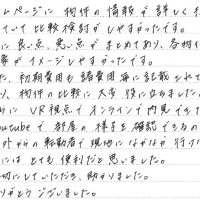 ムページに物件の情報が詳しく
ていて比較検討がしやすかったです。
に良い点、悪い点がまとめてあり、各物件
がイメージしやすかったです。
た、初期費用も諸費用等に記載されて
り、物件の比較に大変役に立ちました
らに VR視点でオンラインで内見でき
outubeで部屋の様子を確認できるの
外からの転勤者で現地になかなか行け
には とても便利だと思いました。
切にしていただき、助かりました。
りがとうございました。